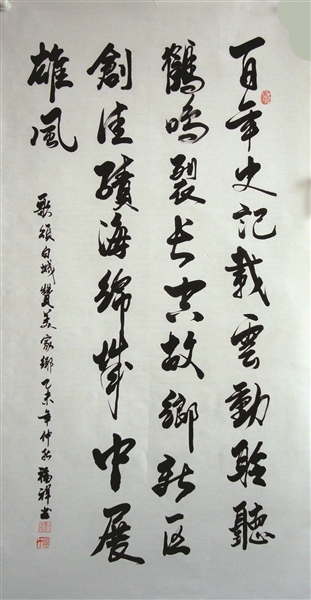 百年史記載雲動聆聽
鶴鳴裂長空故鄉新区
創佳績海綿城中展
雄風
歌頌白城贊美家鄉乙未年仲秋福祥书